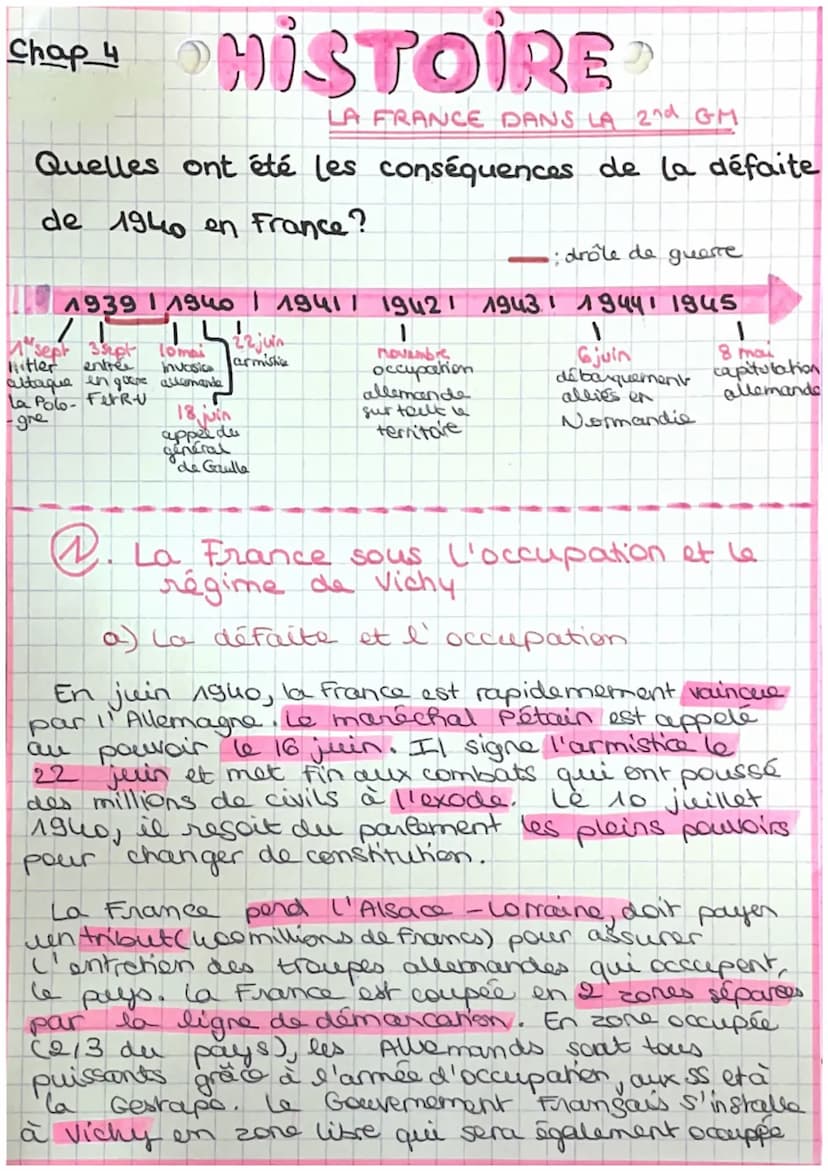 Chap 4
HISTOIRE
LA FRANCE DANS LA 2nd GM
Quelles ont été les conséquences de la défaite
de 1940 en France?
: drôle de guerre
1939 1940 1941 1942 1943 1944 1945
1er sept Hitler attaque la Polo-gne
3 sept entrée en guerre F et R-U
10 mai invasion allemande
18 juin appel du général de Gaulle
22 juin armistice
novembre occupation allemande sur tout le territoire
6 juin débarquement alliés en Normandie
8 mai capitulation allemande
1. La France sous l'occupation et le
régime de Vichy
a) La défaite et l'occupation
En juin 1940, la France est rapidemement vaincue
par l'Allemagne. Le maréchal Pétain est appelé
au pouvoir le 16 juin. Il signe l'armistice le
22 juin et met fin aux combats qui ont poussé
des millions de civils à l'exode. Le 10 juillet
1940, il reçoit du parlement les pleins pouvoirs
pour changer de constitution.
La France perd l'Alsace-Lorraine, doit payer
un tribut (400 millions de Francs) pour assurer
l'entretien des troupes allemandes qui occupent,
le pays. La France est coupée en 2 zones séparées
par la ligne de démarcation. En zone occupée
(2/3 du pays), les Allemands sont tous
puissants grâce à l'armée d'occupation, aux SS et à
la Gestapo. Le Gouvernement Français s'installe
à Vichy en zone libre qui sera également occupée